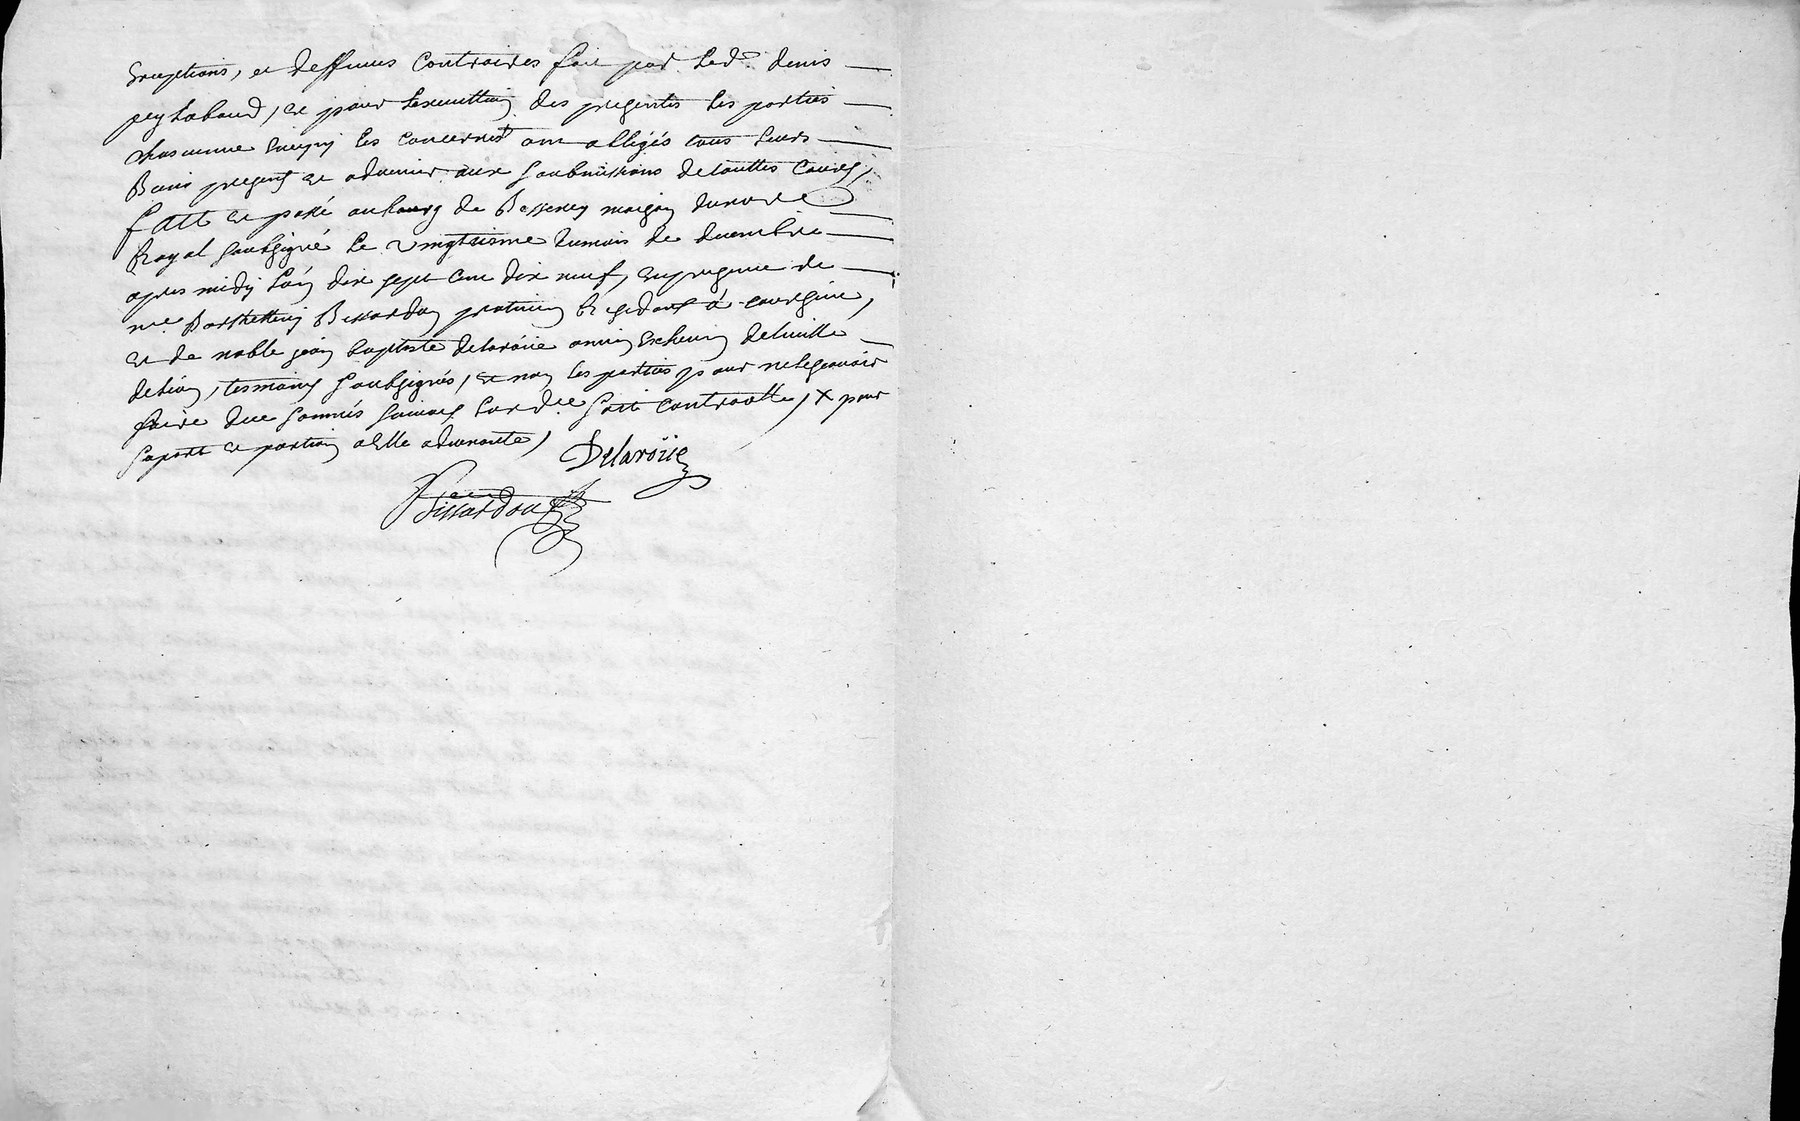 Exceptions, et deffenses contraires fait par led.t denis
peylaboud, et pour lexecution des presentes les parties
chascunne en ce qui les concernet ont obligés tous leurs
Biens presens et advenir aux soubmissions de touttes cours,
fait et passé au bourg de Bessenay maison du no.re
Royal soubsigné le vingtiesme du mois de decembre
apres midy l'an dix sept cent dix neuf, en presence de
m.re Barthellemy Bissardon praticien Residant à courzieu,
et de noble jean baptiste delaroüe ancien Eschevin de la ville
de lion, tesmoins soubsignés, et non les parties pour ne le sçavoir
faire due sommés suivant l'ord.ce soit controollé, x pour
sa part et portion a Elle advenante,
Delaroüe
Bissardon